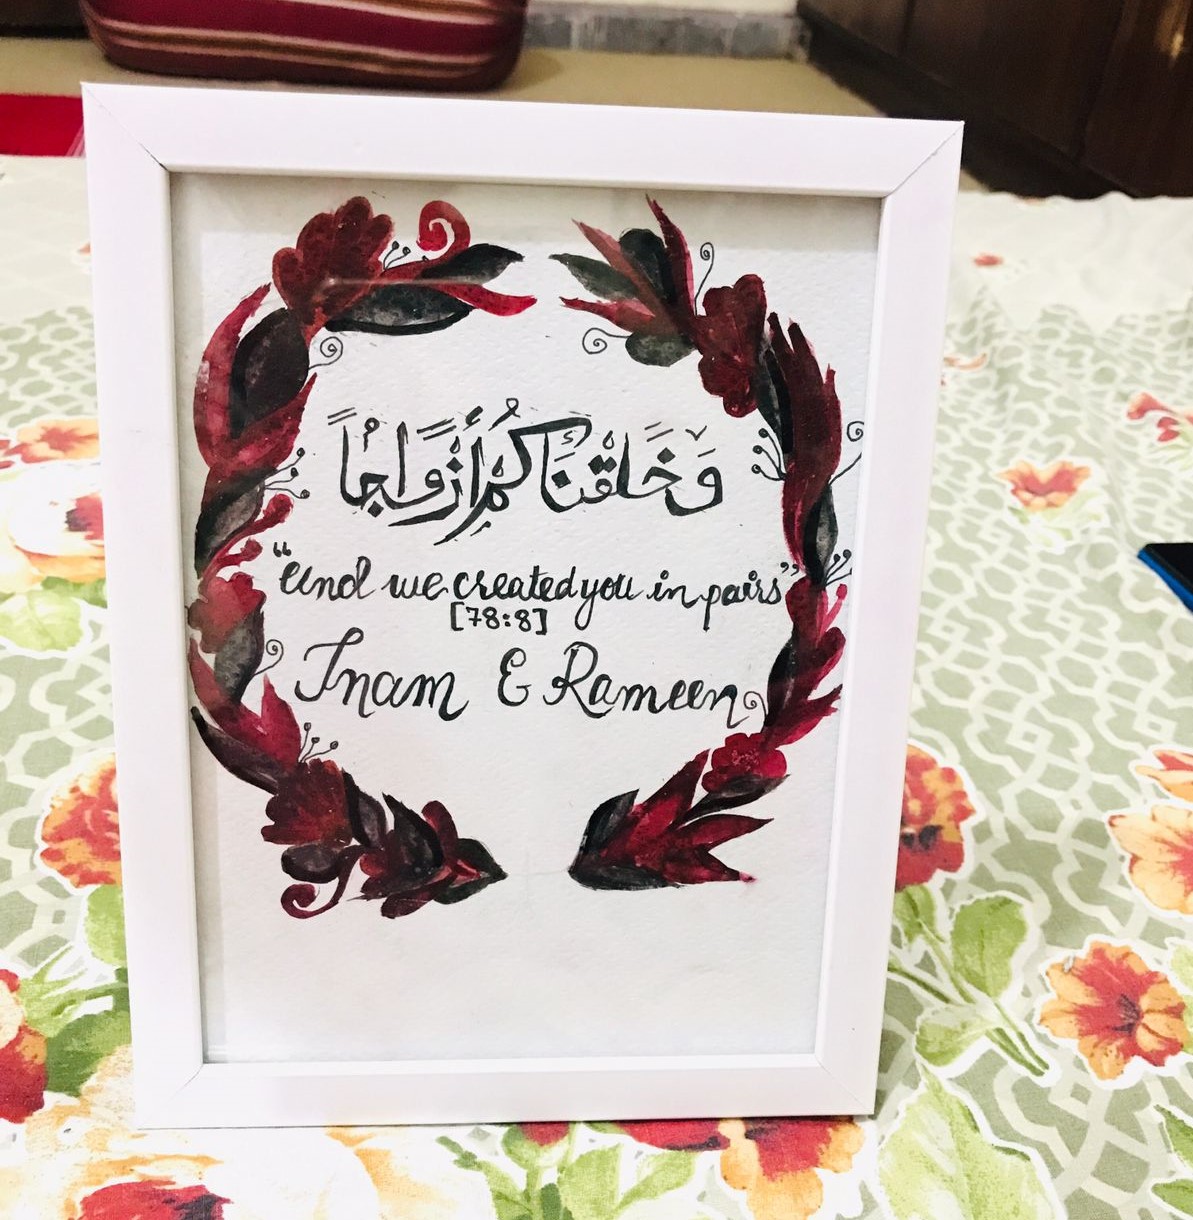 وَخَلَقْنَاكُمْ أَزْوَاجًا
"and we created you in pairs"
[78:8]
Inam & Rameen